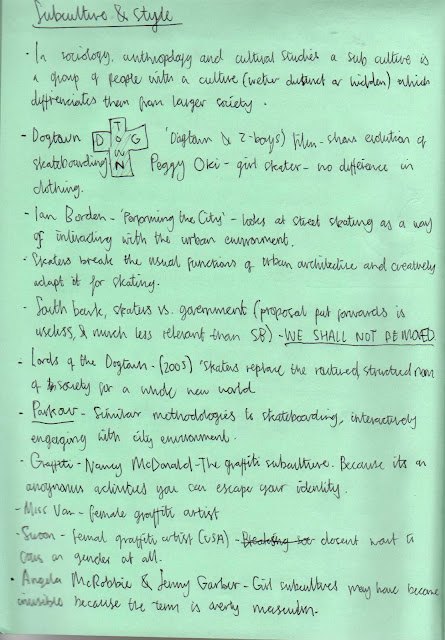 Subculture & Style
- In sociology, anthropology and cultural studies a sub culture is
a group of people with a culture (wether distinct or hidden) which
differenciates them from larger society.
- Dogtown D T O W N G 'Dogtown & Z-boys) film - shows evolution of
skateboarding Peggy Oki - girl skater - no difference in
clothing.
- Ian Borden - 'Performing the City' - looks at street skating as a way
of interacting with the urban environment.
- Skaters break the usual functions of urban architecture and creatively
adapt it for skating.
- South bank, skaters vs. government (proposal put forwards is
useless, & much less relevant than SB) - WE SHALL NOT BE MOVED
- Lords of the Dogtown - (2005) 'Skaters replace the structured norm
of society for a whole new world
- Parkour - Similar methodologies to skateboarding, interactively
engaging with city environment.
- Graffiti - Nancy McDonald - The graffiti subculture. Because its an
anonymous activities you can escape your identity.
- Miss Van - female graffiti artist
- Swoon - femal graffiti artist (USA) - doesent want to
focus on gender at all.
- Angela McRobbie & Jenny Garber - Girl subcultures may have become
invisible because the term is overly masculin.